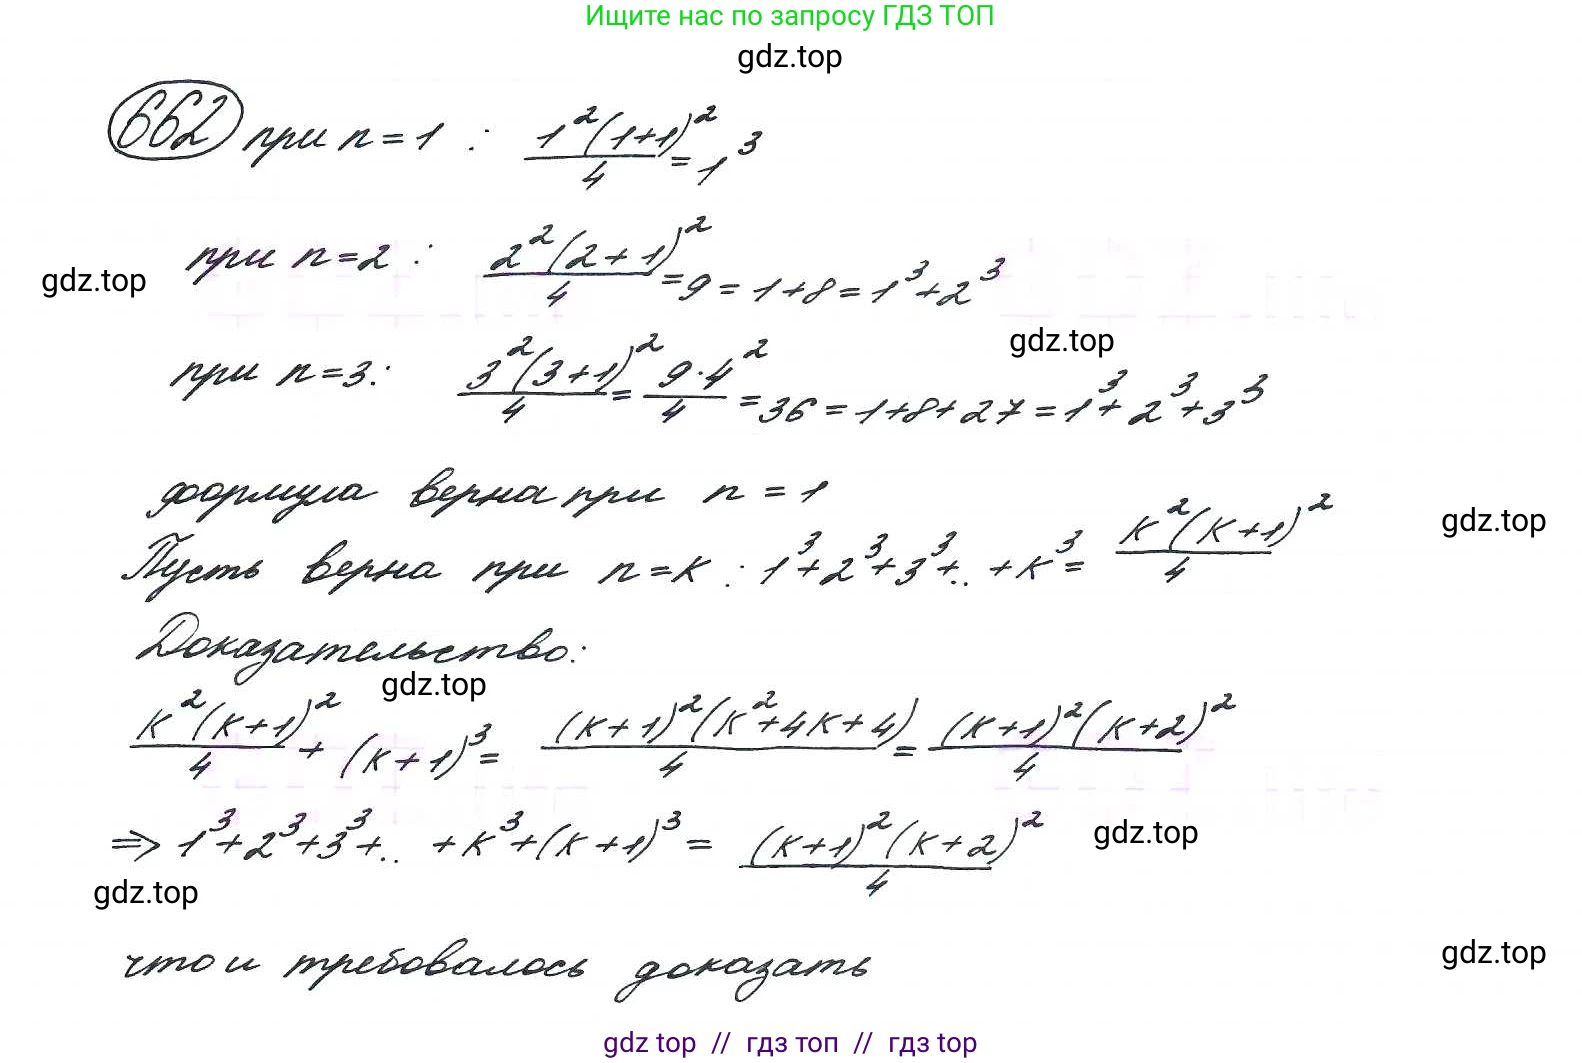 Ищите нас по запросу ГДЗ ТОП
gdz.top
662 при n = 1 : 1²(1+1)²/4 = 1³
при n = 2 : 2²(2+1)²/4 = 9 = 1+8 = 1³+2³
gdz.top
gdz.top
при n = 3 : 3²(3+1)²/4 = 9·4²/4 = 36 = 1+8+27 = 1³+2³+3³
формула верна при n = 1
gdz.top
Пусть верна при n = k : 1³+2³+3³+.. +k³ = k²(k+1)²/4
Доказательство:
gdz.top
k²(k+1)²/4 + (k+1)³ = (k+1)²(k²+4k+4)/4 = (k+1)²(k+2)²/4
⇒ 1³+2³+3³+.. +k³+(k+1)³ = (k+1)²(k+2)²/4
gdz.top
gdz.top
что и требовалось доказать
gdz.top
gdz top // гдз топ // gdz top